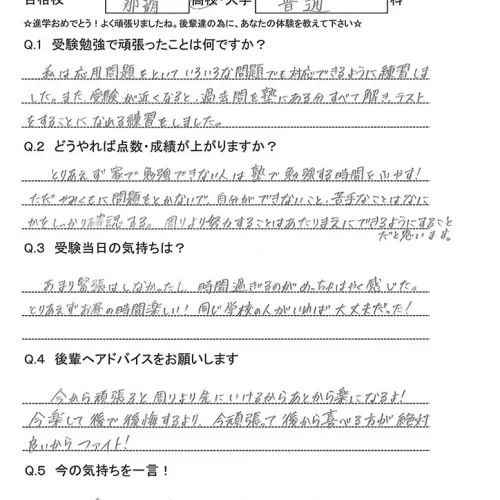 合格校 那覇 高校・大学 普通 科
☆進学おめでとう！よく頑張りましたね。後輩達の為に、あなたの体験を教えて下さい☆
Q.1 受験勉強で頑張ったことは何ですか？
私は応用問題をといていろいろな問題でも対応できるように練習しま
した。また、受験が近くなると、過去問を塾にある分すべて解き、テスト
をすることになれる練習をしました。
Q.2 どうやれば点数・成績が上がりますか？
とりあえず家で勉強できない人は塾で勉強する時間をふやす！
ただやみくもに問題をとかないで、自分ができないこと、苦手なことはなに
かをしっかり確認する。周りより努力することはあたりまえにできるようにすること
だと思います。
Q.3 受験当日の気持ちは？
あまり緊張はしなかったし、時間過ぎるのがめっちゃはやく感じた。
とりあえずお昼の時間楽しい！同じ学校の人がいれば大丈夫だった！
Q.4 後輩へアドバイスをお願いします
今から頑張ると周りより先にいけるからあとから楽になるよ！
今楽して後で後悔するより、今頑張って後から喜べる方が絶対
良いからファイト！
Q.5 今の気持ちを一言！